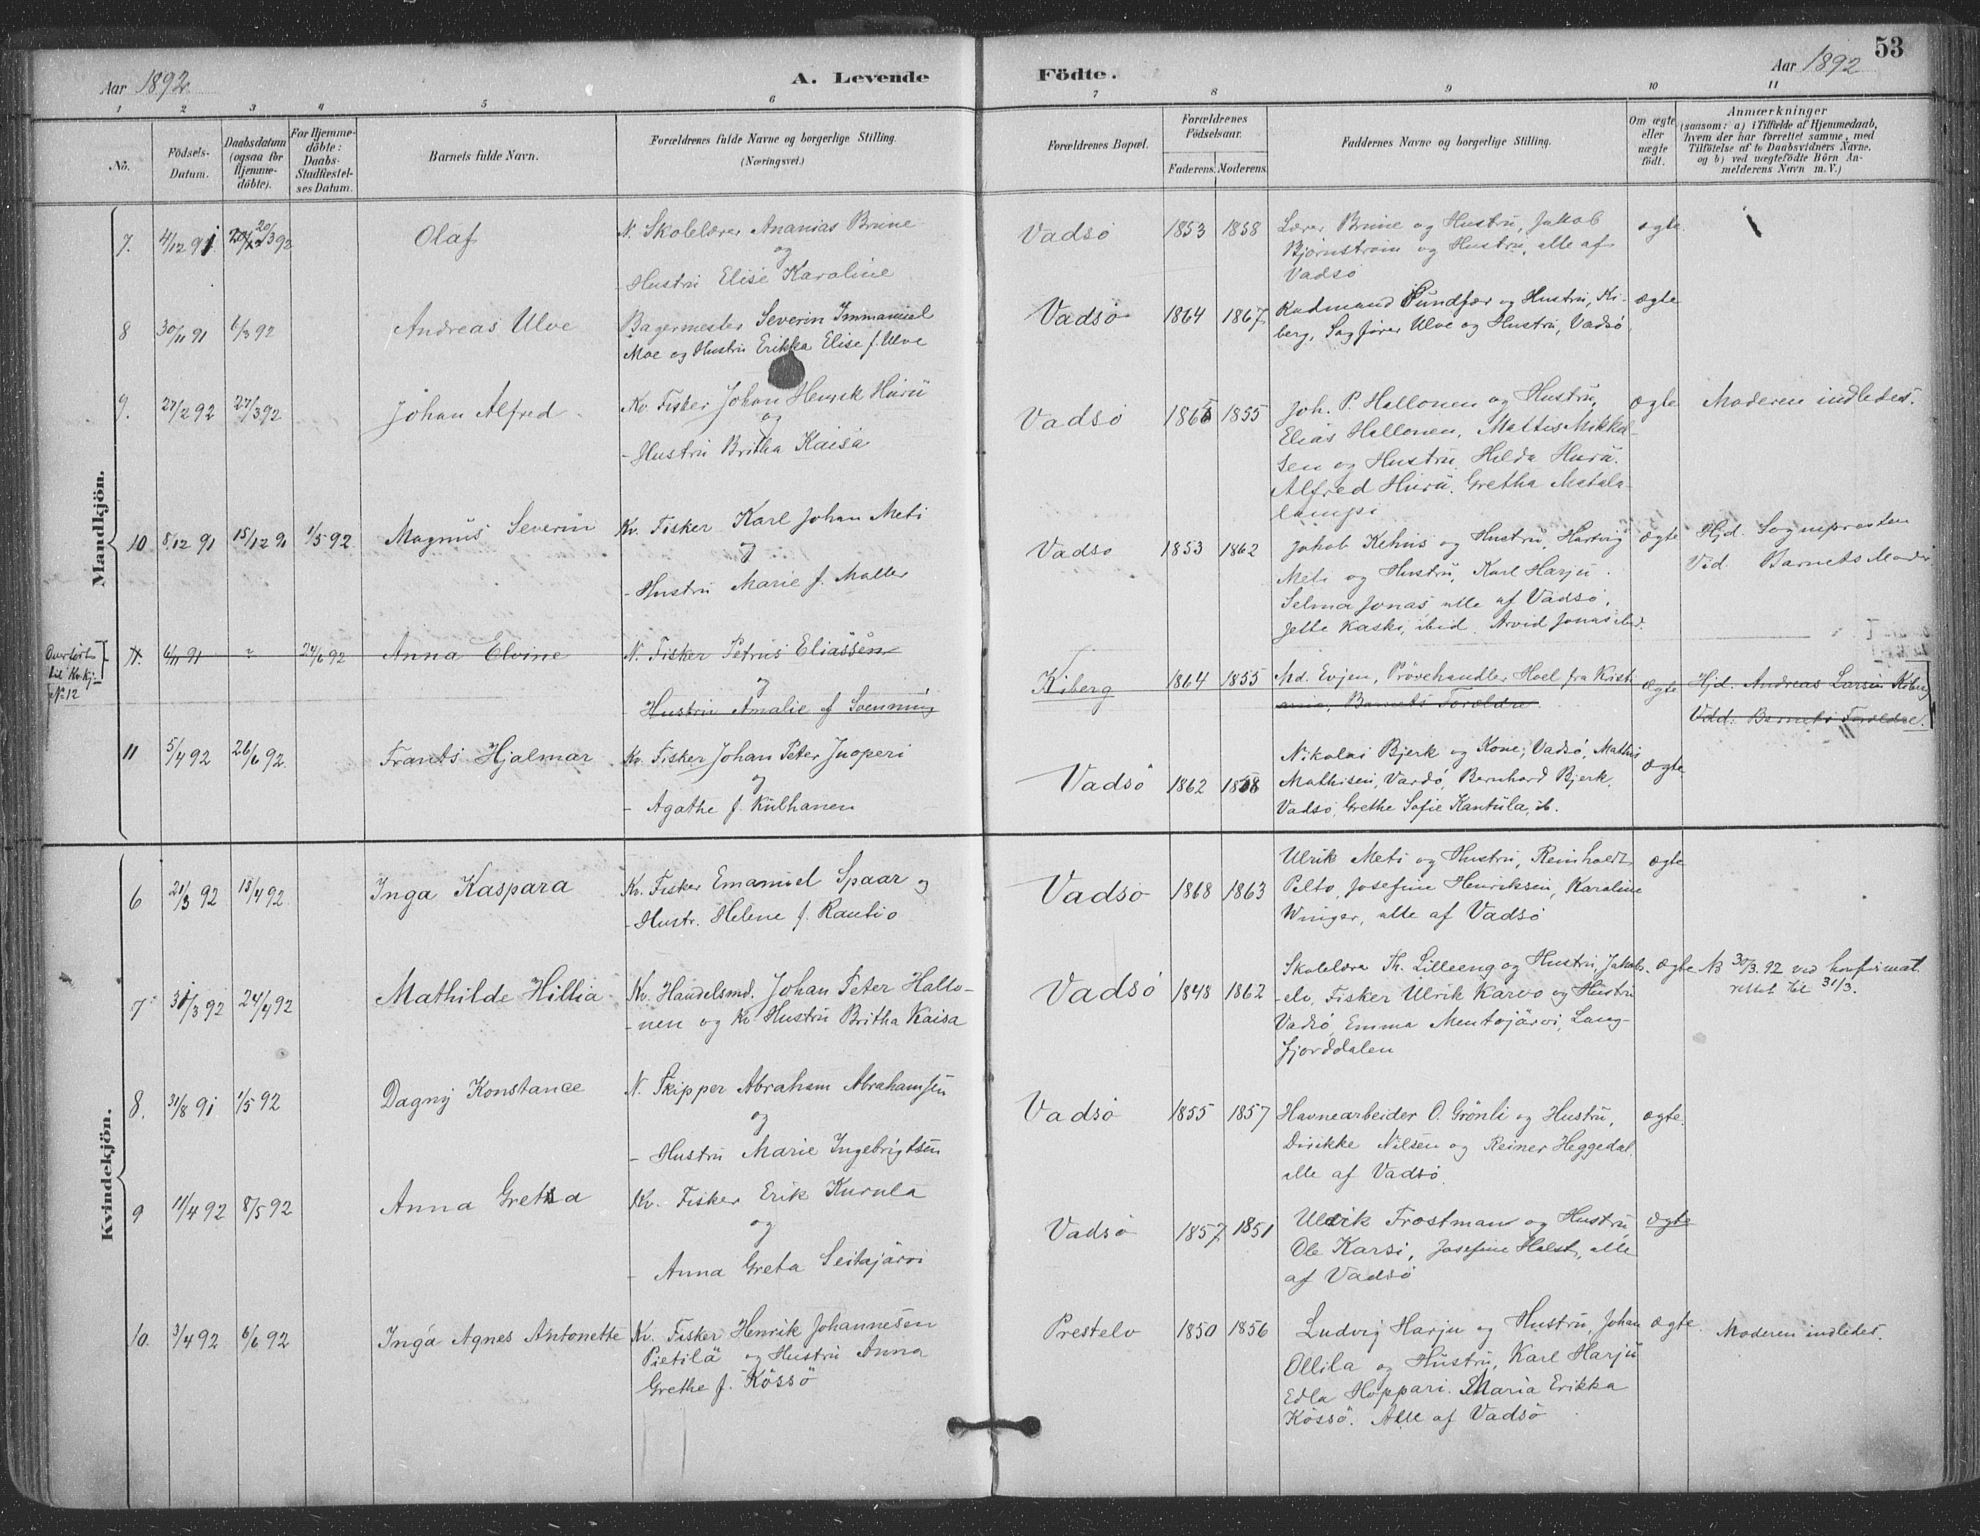 53
Aar 1892
A. Levende
Födte.
Aar 1892
1 2 3 4 5 6 7 8 9 10 11
No.
Födsels-Datum.
Daabsdatum (ogsaa for Hjemme-döbte).
For Hjemme-döbte: Daabs-Stadfæstel-ses Datum.
Barnets fulde Navn.
Forældrenes fulde Navne og borgerlige Stilling.
(Næringsvei.)
Forældrenes Bopæl.
Forældrenes Födselsaar.
Faderens. Moderens.
Faddernes Navne og borgerlige Stilling.
Om ægte eller uægte födt.
Anmærkninger
(saasom: a) i Tilfælde af Hjemmedaab,
hvem der har forrettet samme, med
Tilföielse af to Daabsvidners Navne.
og b) ved uægtefödte Börn An-
melderens Navn m. V.)
Mandkjön.
7. 4/12 91 20/3 92 Olaf N. Skolelærer Ananias Brune Vadsö 1853 1858 Lærer Brune og Hustru, Jakob ægte
og Bjørnstrøm og Hustru, alle af
- Hustru Elise Karoline Vadsö
8 30/11 91 6/3 92 Andreas Ulve Bagermester Severin Immanuel Vadsö 1864 1867 Kudmand Sundfær og Hustru, Ki- ægte
Moe og Hustru Erikka Elise f. Ulve berg, Sagfører Ulve og Hustru, Vadsö
9. 27/2 92 27/3 92 Johan Alfred Kv. Fisker Johan Henrik Huru Vadsö 1855 Joh. P. Hallonen og Hustru, ægte Moderen indledet.
og Elias Hallonen, Mattis Mikkel-
- Hustru Britha Kaisa sen og Hustru, Hilda Huru.
Alfred Huru. Gretha Matala-
lampi
10 8/12 91 15/12 91 1/5 92 Magnus Severin Kv. Fisker Karl Johan Meti Vadsö 1853 1862 Jakob Kehus og Hustru, Hartvig ægte Hjd. Sognepresten
og Meti og Hustru, Karl Harju. Vid. Barnets Moder
- Hustru Marie f. Maller Selma Jonas alle af Vadsö,
Jette Kaski, ibid. Arvid Jonas ibid.
Overført til Kv.kj. No 12
11. 6/11 91 ? 24/6 92 Anna Elvine N. Fisker Petrus Eliassen Kiberg 1864 1855 Md. Evjen, Prövehandler Hoel fra Kristi- ægte Hjd. Andreas Larsen Kiberg
og ania, Barnets Forældre. Vidd: Barnets Forældre.
Hustru Amalie f Svenning
11 5/4 92 26/6 92 Frants Hjalmar Kv. Fisker Johan Peter Juoperi Vadsö 1862 Nikolai Bjerk og Kone, Vadsö, Mathis ægte
og Mathisen, Vardö, Bernhard Bjerk,
- Agathe f. Kulhanen Vadsö, Grethe Sofie Kantula, ib.
Kvindekjön.
6 21/3 92 18/4 92 Inga Kaspara Kv. Fisker Emanuel Spaar og Vadsö 1868 1863 Ulrik Meti og Hustru, Reinholdt ægte
- Hustr. Helene f. Rautio Pelto, Josefine Henriksen, Karoline
Winger, alle af Vadsö
7 31/3 92 24/4 92 Mathilde Hillia Kv. Handelsmd. Johan Peter Hallo- Vadsö 1848 1862 Skolelærer Th. Lilleeng og Hustru, Jakobs- ægte NB 30/3 92 ved konfirmat.
-nen og kv Hustru Britha Kaisa elv, Fisker Ulrik Karvo og Hustru rettet til 31/3.
Vadsö, Emma Mentojärvi, Lang-
fjorddalen
8. 31/8 91 1/5 92 Dagny Konstance N. Skipper Abraham Abrahamsen Vadsö 1855 1857 Havnearbeider O. Grönli og Hustru, ægte.
og Dirikke Nilsen og Reiner Heggedal
- Hustru Marie Ingebrigtsen alle af Vadsö.
9 11/4 92 8/5 92 Anna Greta Kv. Fisker Erik Kurula Vadsö 1857 1851 Ulrik Frostman og Hustru, ægte
og Ole Karsi, Josefine Holst, alle
- Anna Greta Seitajärvi af Vadsö
10. 3/4 92 6/6 92 Inga Agnes Antonette Kv. Fisker Henrik Johannesen Prestelv 1850 1856 Ludvig Harju og Hustru, Johan ægte. Moderen indledet.
Pietilä og Hustru Anna Ollila og Hustru, Karl Harju
Grethe f. Kössö Edla Hoppari. Maria Erikka
Kössö. Alle af Vadsö